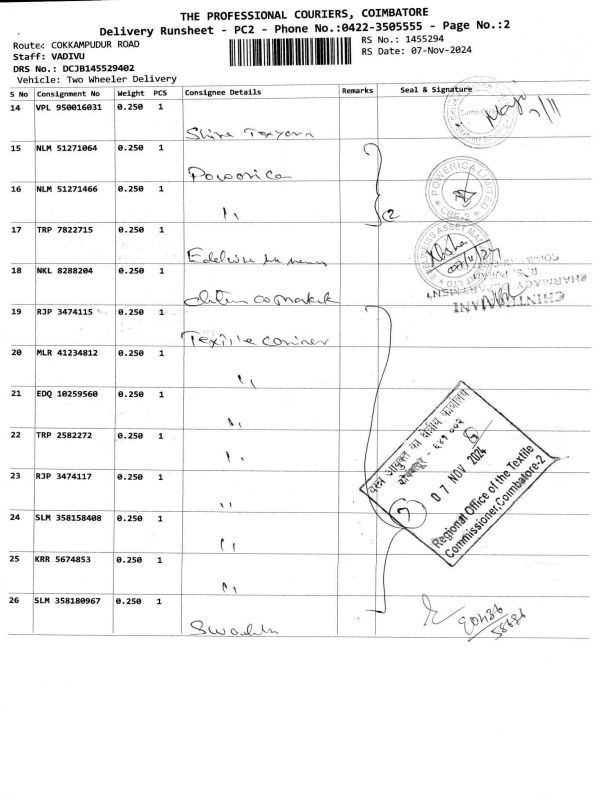 THE PROFESSIONAL COURIERS, COIMBATORE
Delivery Runsheet - PC2 - Phone No.:0422-3505555 - Page No.:2
Route: COKKAMPUDUR ROAD
RS No.: 1455294
Staff: VADIVU
RS Date: 07-Nov-2024
DRS No.: DCJB145529402
Vehicle: Two Wheeler Delivery
S No Consignment No Weight PCS Consignee Details Remarks Seal & Signature
14 VPL 950016031 0.250 1
15 NLM 51271064 0.250 1
16 NLM 51271466 0.250 1
2
POWERICA LIMITED
CBE-2
17 TRP 7822715 0.250 1
18 NKL 8288204 0.250 1
CHINTHAMANI
PHARMACY DEPARTMENT
19 RJP 3474115 0.250 1
Textile
20 MLR 41234812 0.250 1
21 EDQ 10259560 0.250 1
22 TRP 2582272 0.250 1
23 RJP 3474117 0.250 1
24 SLM 358158408 0.250 1
25 KRR 5674853 0.250 1
26 SLM 358180967 0.250 1
वस्त्र आयुक्त का क्षेत्रीय कार्यालय
कोयम्बतूर - ६४१ ००२
07 NOV 2024
7
Regional Office of the Textile
Commissioner, Coimbatore-2